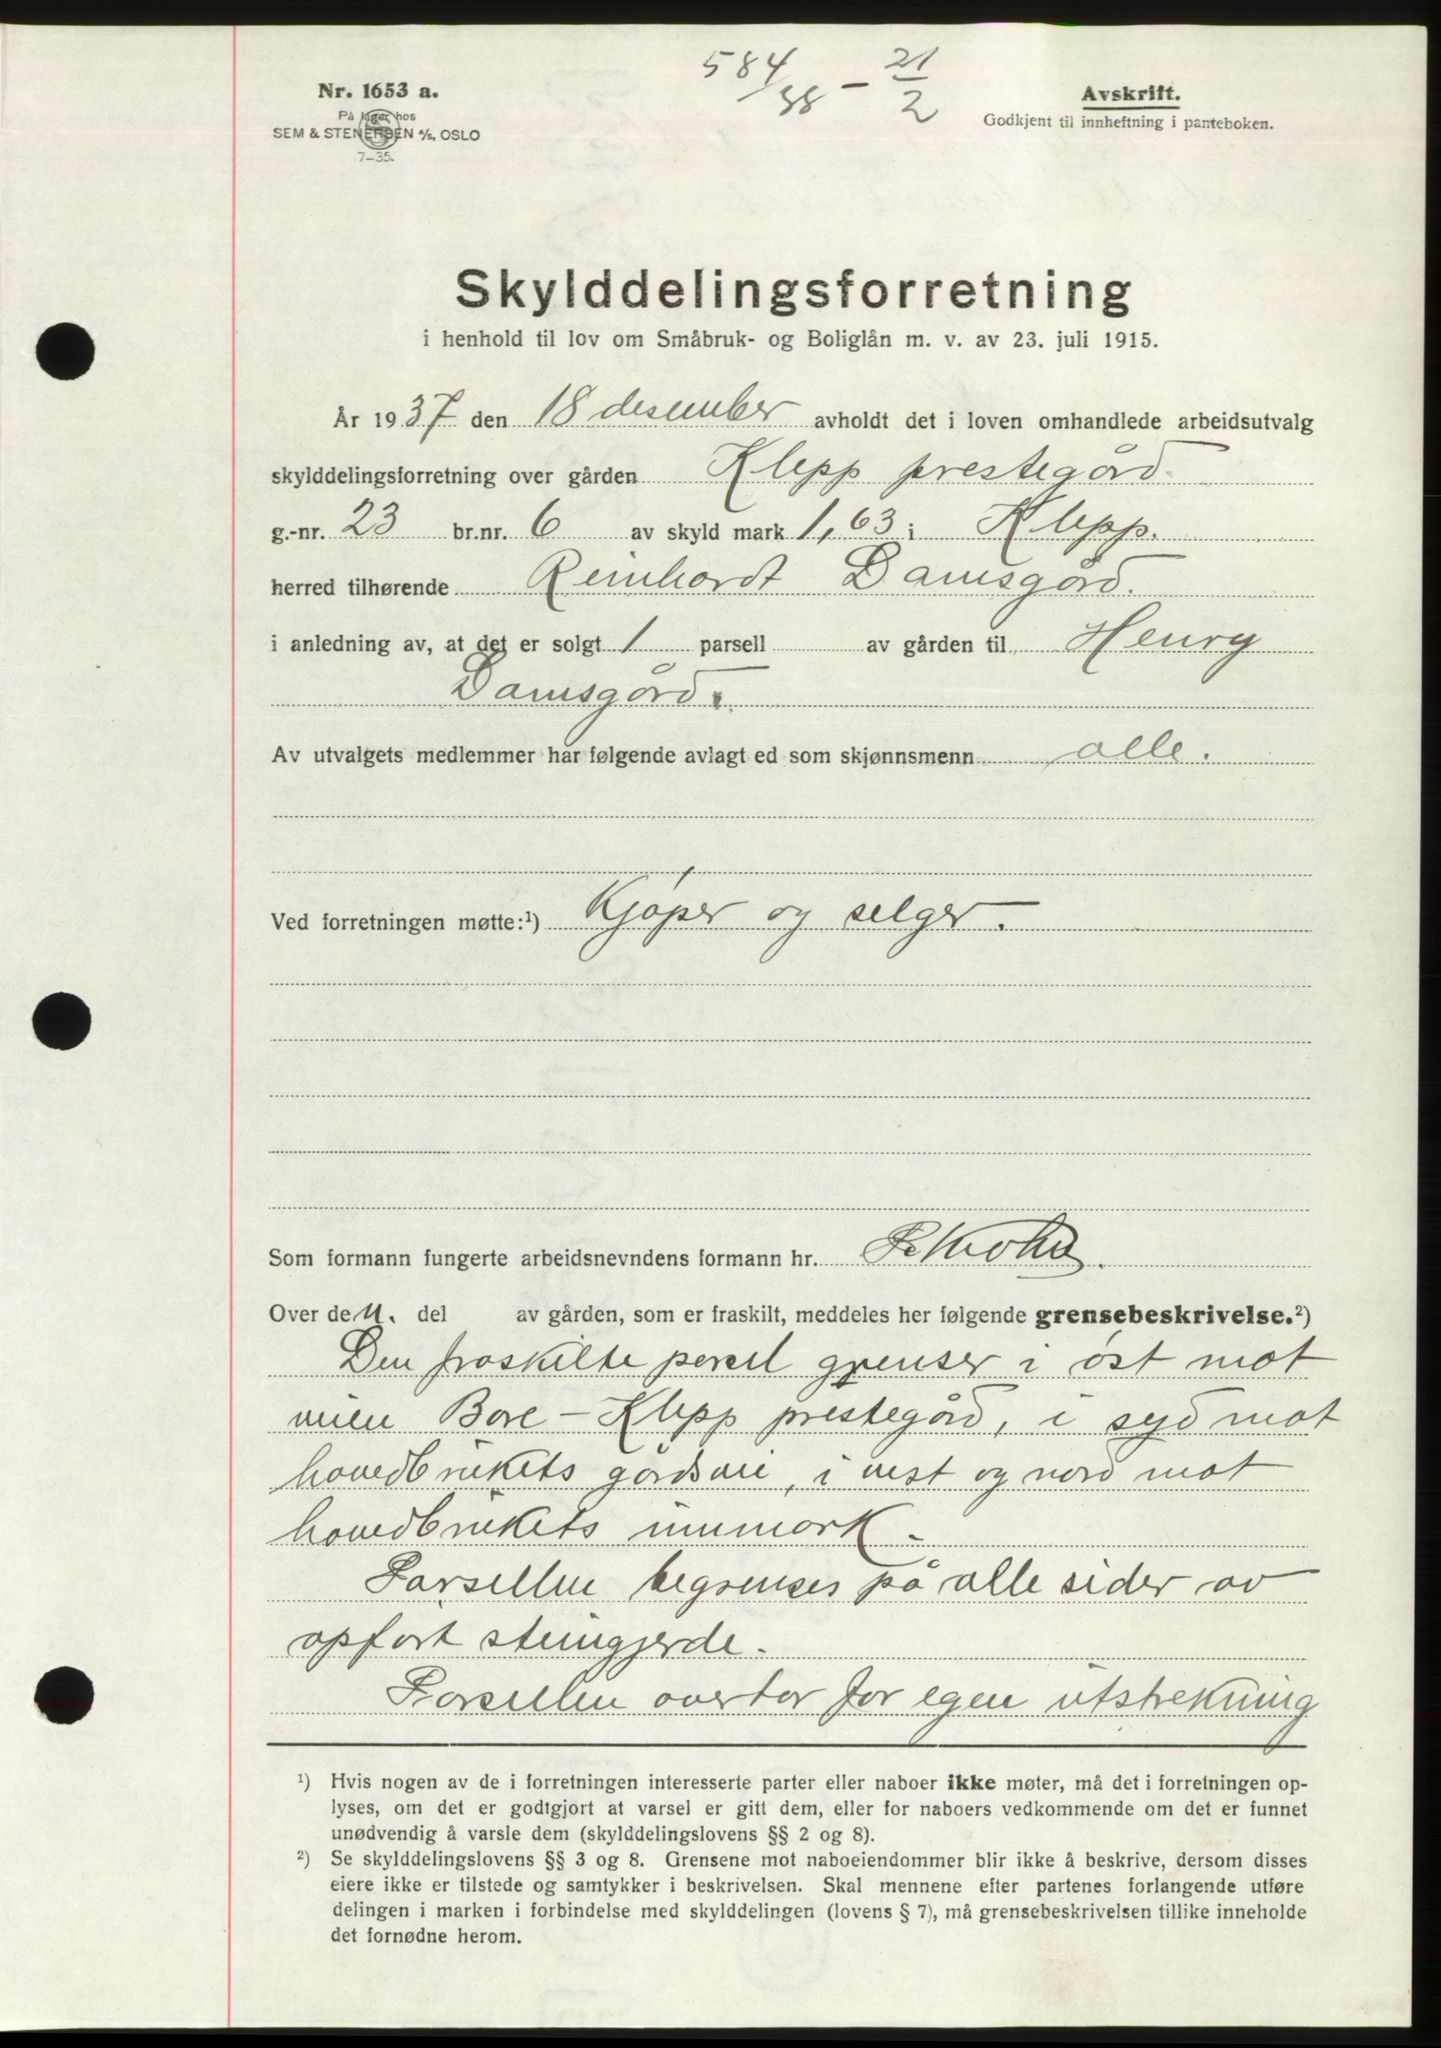 584/38 – 21/2
Nr. 1653 a.
På lager hos
SEM & STENERSEN A/S, OSLO
7–35.
Avskrift.
Godkjent til innheftning i panteboken.
Skylddelingsforretning
i henhold til lov om Småbruk- og Boliglån m. v. av 23. juli 1915.
År 1937 den 18 desember avholdt det i loven omhandlede arbeidsutvalg
skylddelingsforretning over gården Klepp prestegård.
g.-nr. 23 br.nr. 6 av skyld mark 1,63 i Klepp.
herred tilhørende Reinhardt Damsgård.
i anledning av, at det er solgt 1 parsell av gården til Henry
Damsgård.
Av utvalgets medlemmer har følgende avlagt ed som skjønnsmenn alle.
Ved forretningen møtte:¹) Kjøper og selger.
Som formann fungerte arbeidsnevndens formann hr.
Over den. del av gården, som er fraskilt, meddeles her følgende grensebeskrivelse.²)
Den fraskilte parsel grenser i øst mot
veien Bore – Klepp prestegård, i syd mot
hovedbrukets gårdsvei, i vest og nord mot
hovedbrukets innmark.
Parsellen begrenses på alle sider av
opført steingjerde.
Parsellen overtar for egen utstrekning
¹) Hvis nogen av de i forretningen interesserte parter eller naboer ikke møter, må det i forretningen op-
lyses, om det er godtgjort at varsel er gitt dem, eller for naboers vedkommende om det er funnet
unødvendig å varsle dem (skylddelingslovens §§ 2 og 8).
²) Se skylddelingslovens §§ 3 og 8. Grensene mot naboeiendommer blir ikke å beskrive, dersom disses
eiere ikke er tilstede og samtykker i beskrivelsen. Skal mennene efter partenes forlangende utføre
delingen i marken i forbindelse med skylddelingen (lovens § 7), må grensebeskrivelsen tillike inneholde
det fornødne herom.